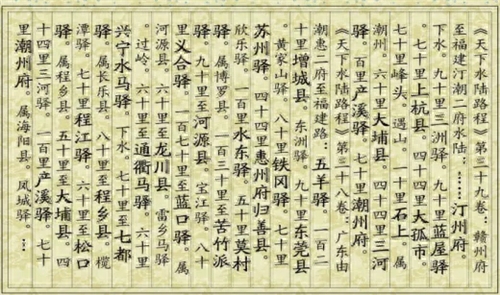 《天下水陆路程》第三十九卷：赣州府
至福建汀潮二府水陆：……汀州府。
下水。九十里三洲驿。九十里蓝屋驿
七十里上杭县。四十四里大孤市。
七十里峰头。过山。一十里石上。属
潮州。六十里大埔县。四十四里三河
驿。百里产溪驿。七十里潮州府。
《天下水陆路程》第三十八卷：广东由
潮惠二府至福建路：五羊驿。一百二
十里增城县。东洲驿。九十里东莞县
黄家山驿。八十里铁冈驿。七十里
苏州驿。四十四里惠州府归善县。
欣乐驿。一百里水东驿。五十里莫村
驿。属博罗县。一百三十里至苦竹派
驿。九十里至河源县。宝江驿。八十
里义合驿。一百七十里至蓝口驿。属
河源县。六十里至龙川县。雷乡马驿
过岭。六十里至通衢马驿。六十里
兴宁水马驿。下水。七十里至七都
驿。属长乐县。八十里至程乡县。榄
潭驿。七十里程江驿。七十里至松口
驿。属程乡县。五十里至大埔县。四
十四里三河驿。一百里产溪驿。七十
里潮州府。属海阳县。凤城驿……